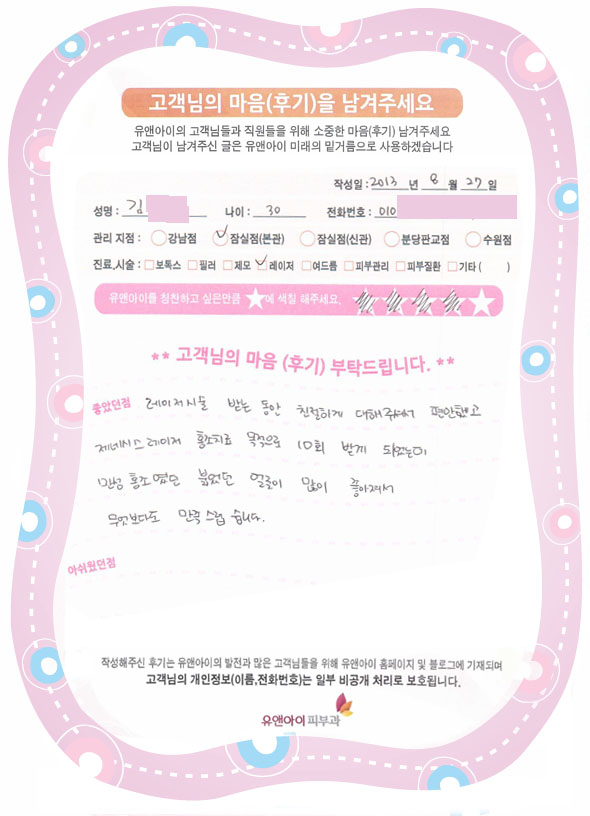 고객님의 마음(후기)을 남겨주세요
유앤아이의 고객님들과 직원들을 위해 소중한 마음(후기) 남겨주세요
고객님이 남겨주신 글은 유앤아이 미래의 밑거름으로 사용하겠습니다
작성일 : 2013 년 8 월 27 일
성명 : 김 나이 : 30 전화번호 : 010
관리 지점 : 강남점 잠실점(본관) 잠실점(신관) 분당판교점 수원점
진료,시술 : 보톡스 필러 제모 레이저 여드름 피부관리 피부질환 기타 ( )
유앤아이를 칭찬하고 싶은만큼 ★에 색칠 해주세요.
** 고객님의 마음 (후기) 부탁드립니다. **
좋았던점 레이저시술 받는 동안 친절하게 대해주셔서 편안했고
제네시스 레이저 홍조치료 목적으로 10회 받게 되었는데
만성 홍조 였던 붉었던 얼굴이 많이 좋아져서
무엇보다도 만족 스럽 습니다.
아쉬웠던점
작성해주신 후기는 유앤아이의 발전과 많은 고객님들을 위해 유앤아이 홈페이지 및 블로그에 기재되며
고객님의 개인정보(이름,전화번호)는 일부 비공개 처리로 보호됩니다.
유앤아이피부과